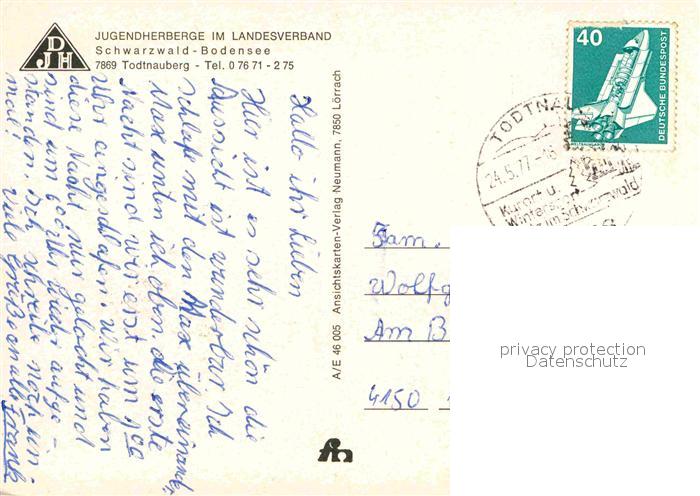 DJH
JUGENDHERBERGE IM LANDESVERBAND
Schwarzwald-Bodensee
7869 Todtnauberg - Tel. 0 76 71 - 2 75
40
DEUTSCHE BUNDESPOST
WELTRAUMLABOR
TODTNAU
24.5.77-16
Kurort u.
Wintersport
im Schwarzwald
Hallo ihr Lieben
Hier ist es sehr schön die
Aussicht ist wunderbar Ich
schlafe mit den Max übereinander,
Max unten ich oben, die erste
Nacht sind wir erst um 1 00
Uhr eingeschlafen. Wir haben
diese Nacht nur gelacht und
sind um 6 00 Uhr wieder aufge-
standen. Ich schreibe noch ein-
mal! Viele Grüße an alle Frank
A/E 46 005 Ansichtskarten-Verlag Neumann, 7850 Lörrach
Fam.
Wolfg
Am B
4150
privacy protection
Datenschutz